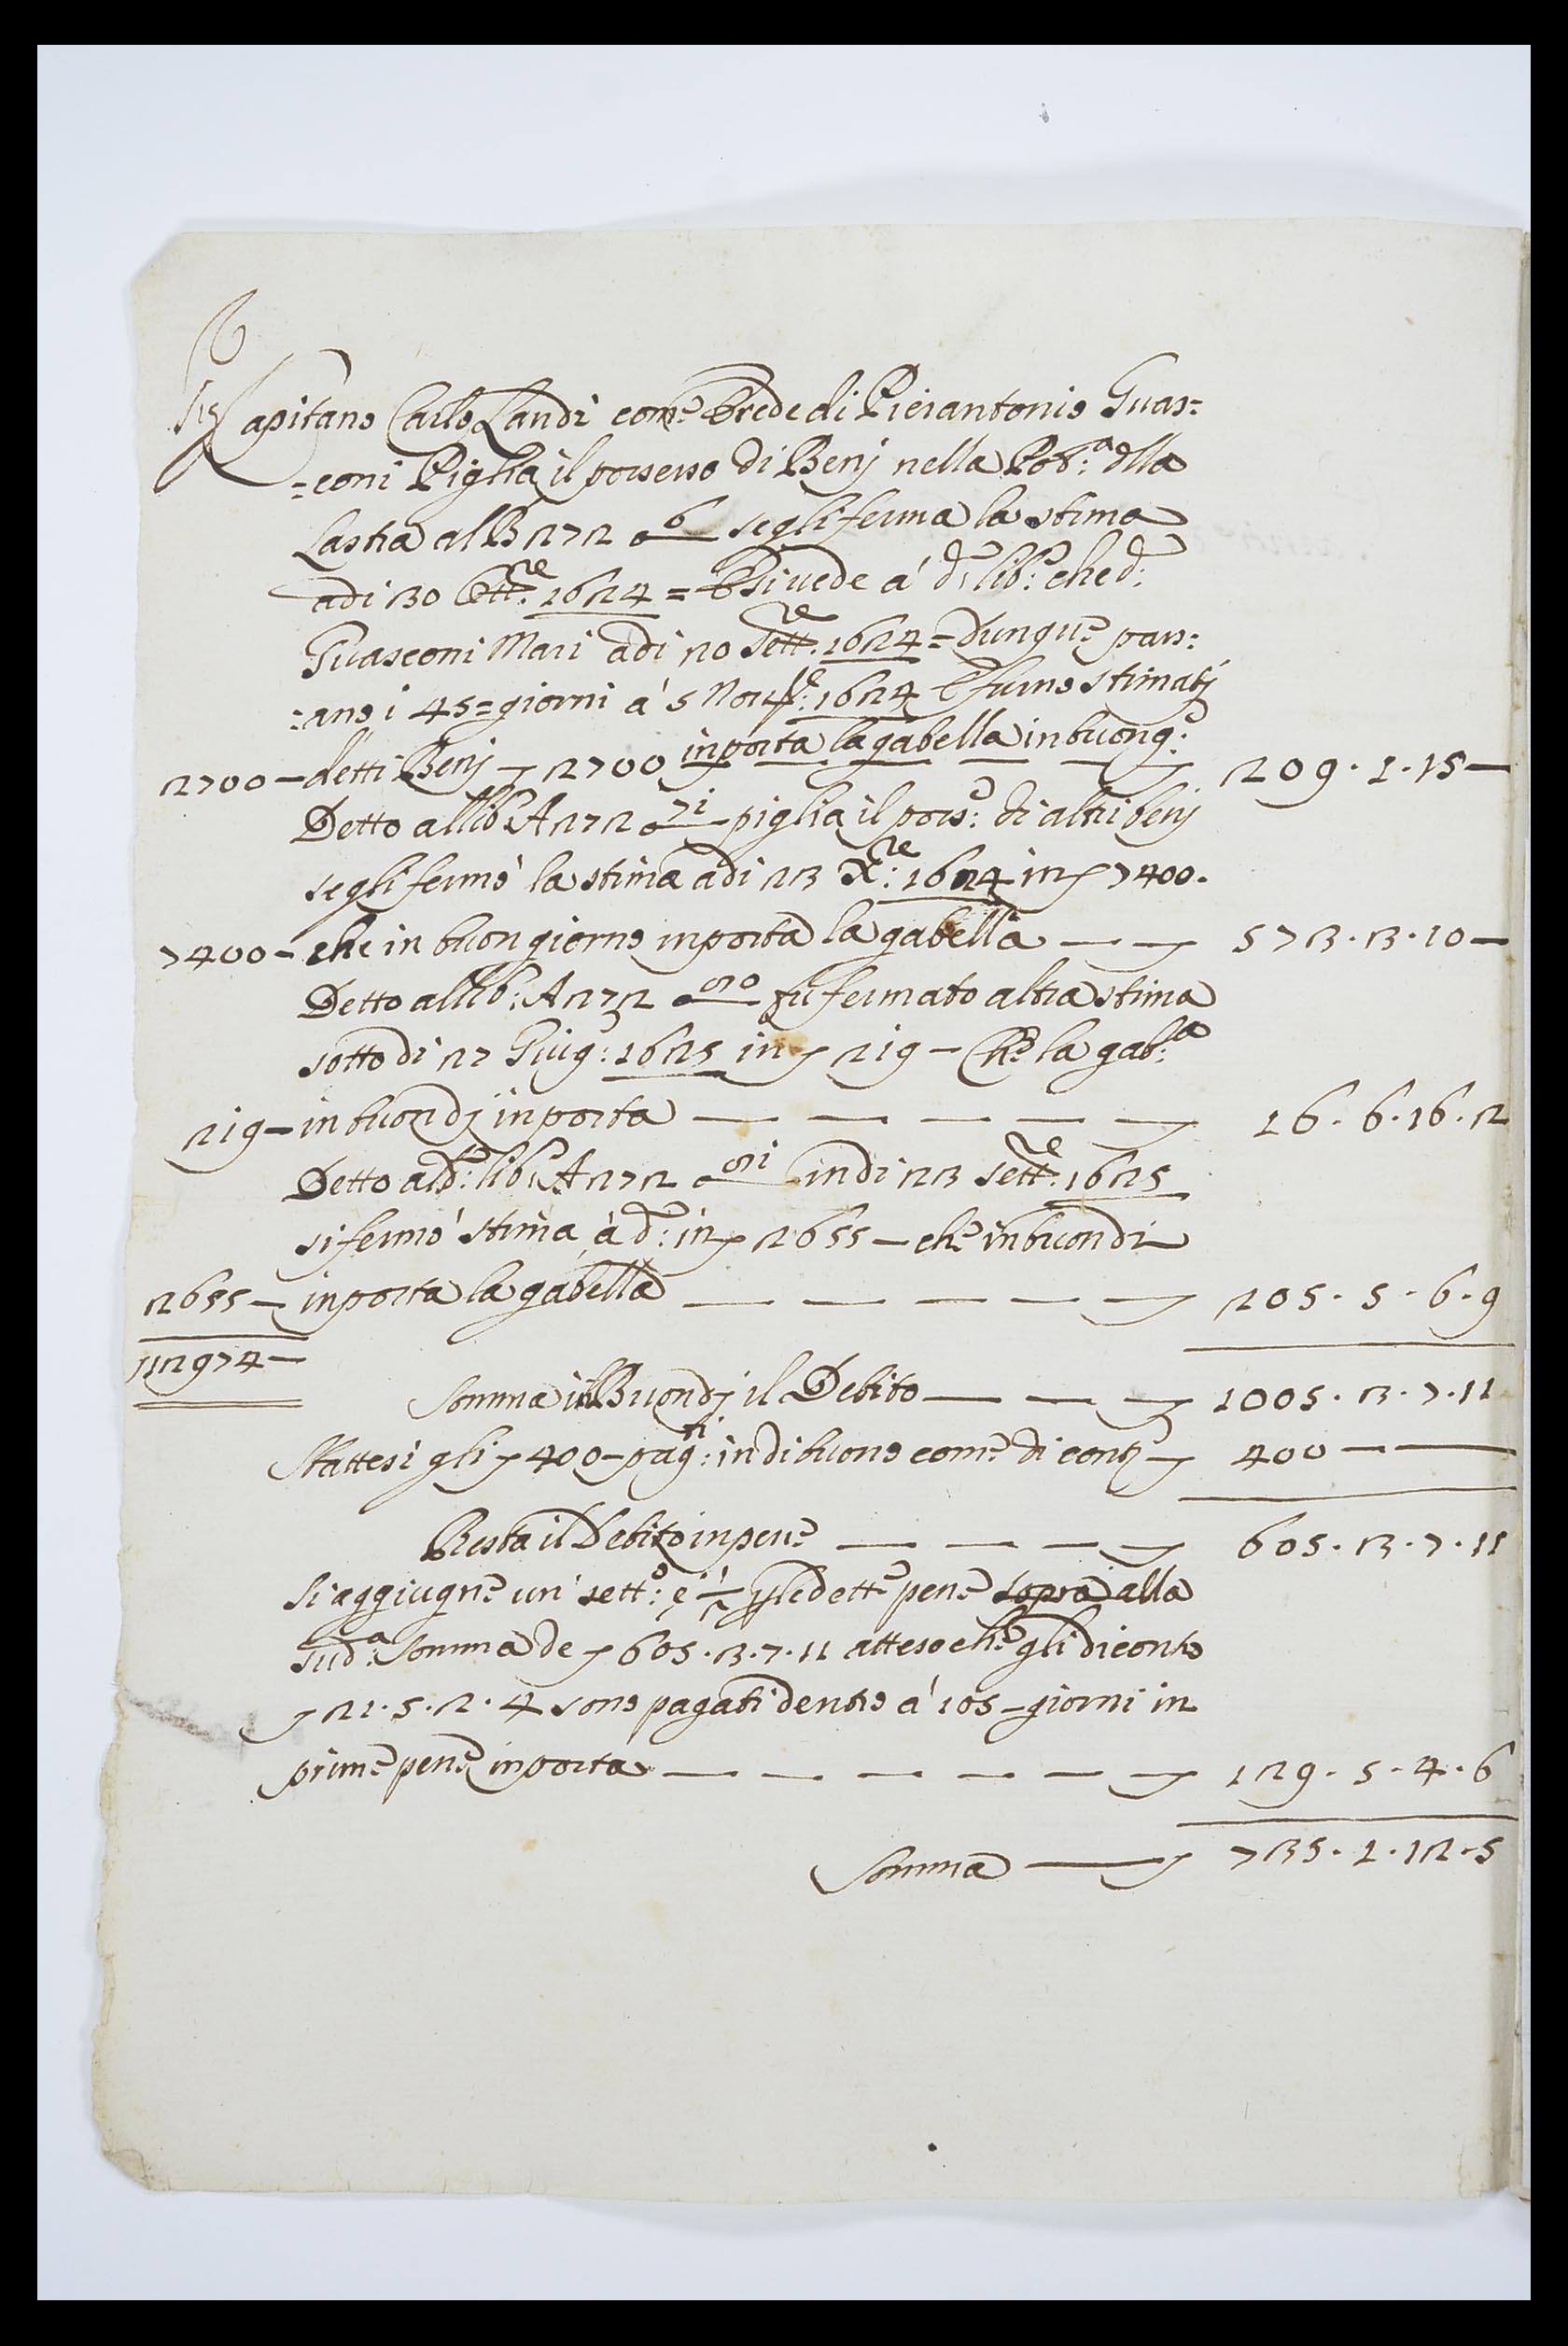 Sig Capitano Carlo Landi come Erede di Pierantonio Guas=
=coni Piglia il possesso di Benj nella Pot:a dlla
Lastra al B 272 6 segli ferma la stima
adi 30 Ott:re 1624 = E si vede á d:o lib:o che d:o
Guasconi Mori adi 20 Sett:re 1624 = dunque pass:
:ano i 45 = giorni á 5 Nou:e 1624 E furno stimatj
2700 — detti Benj 2700 inporta la gabella in buon g:o — — — 209. 1. 15 —
Detto al lib:o A 272 71 piglia il poss:o di altri benj
segli fermó la stima adi 23 X:re 1624 in 7400.
7400 — che in buon giorno inporta la gabella — — 573. 3. 10 —
Detto al lib:o A 272 90 fu fermato altra stima
sotto di 27 Giug:o 1625 in 219 — Che la gab:a
219 — in buon dj inporta — — — — — 16. 6. 16. 2
Detto al d:o lib:o A 272 91 indi 23 Sett:re 1625
si fermó stima á d:o in 2655 — che in buon di
2655 — inporta la gabella — — — — — 205. 5. 6. 9
12974 —
Somma il Buon dj il Debito — — — 1005. 3. 7. 11
Sbattesi gli 400 — pag:ti in di buono come di conto — 400 — —
Resta il Debito in pene — — — — 605. 3. 7. 11
Si aggiugne un sett:o e 1/2 p le dette pene sopra alla
sud:a Somma de 605. 3. 7. 11 atteso che gli di conto
21. 5. 2. 4 sono pagati dentro á 105 — giorni in
prime pene inporta — — — — — — 129. 5. 4. 6
Somma — 735. 1. 12. 5